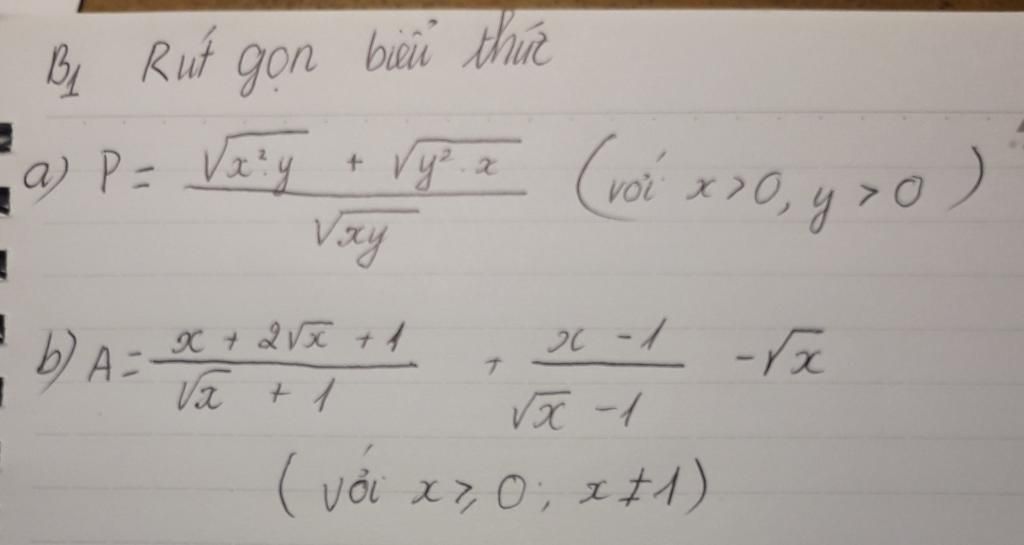 B1 Rút gọn biểu thức
a) P = \frac{\sqrt{x^2.y} + \sqrt{y^2.x}}{\sqrt{xy}} (với x > 0, y > 0)
b) A = \frac{x + 2\sqrt{x} + 1}{\sqrt{x} + 1} + \frac{x - 1}{\sqrt{x} - 1} - \sqrt{x}
(với x ⩾ 0; x ≠ 1)